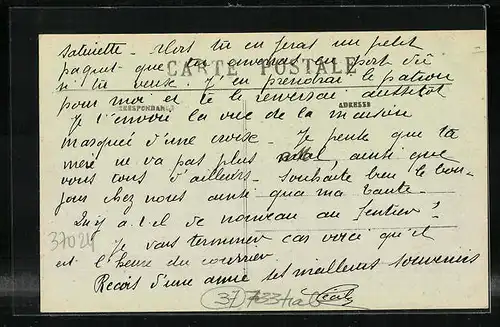 satinette - Alors tu en feras un petit
paquet que tu enverras au port dû
CARTE POSTALE
si tu veux. J'en prendrai le patron
pour moi et te le renverrai aussitôt
CORRESPONDANCE
ADRESSE
Je t'envoie la vue de la maison
marquée d'une croix - Je pense que ta
mère ne va pas plus mal, ainsi que
vous tous d'ailleurs - Souhaite bien le bon-
jour chez nous ainsi qu'a ma tante -
Qu'y a-t-il de nouveau au Sentier?
Je vais terminer car voici qu'il
est l'heure du courrier
Reçois d'une amie ses meilleurs souvenirs
37024
37